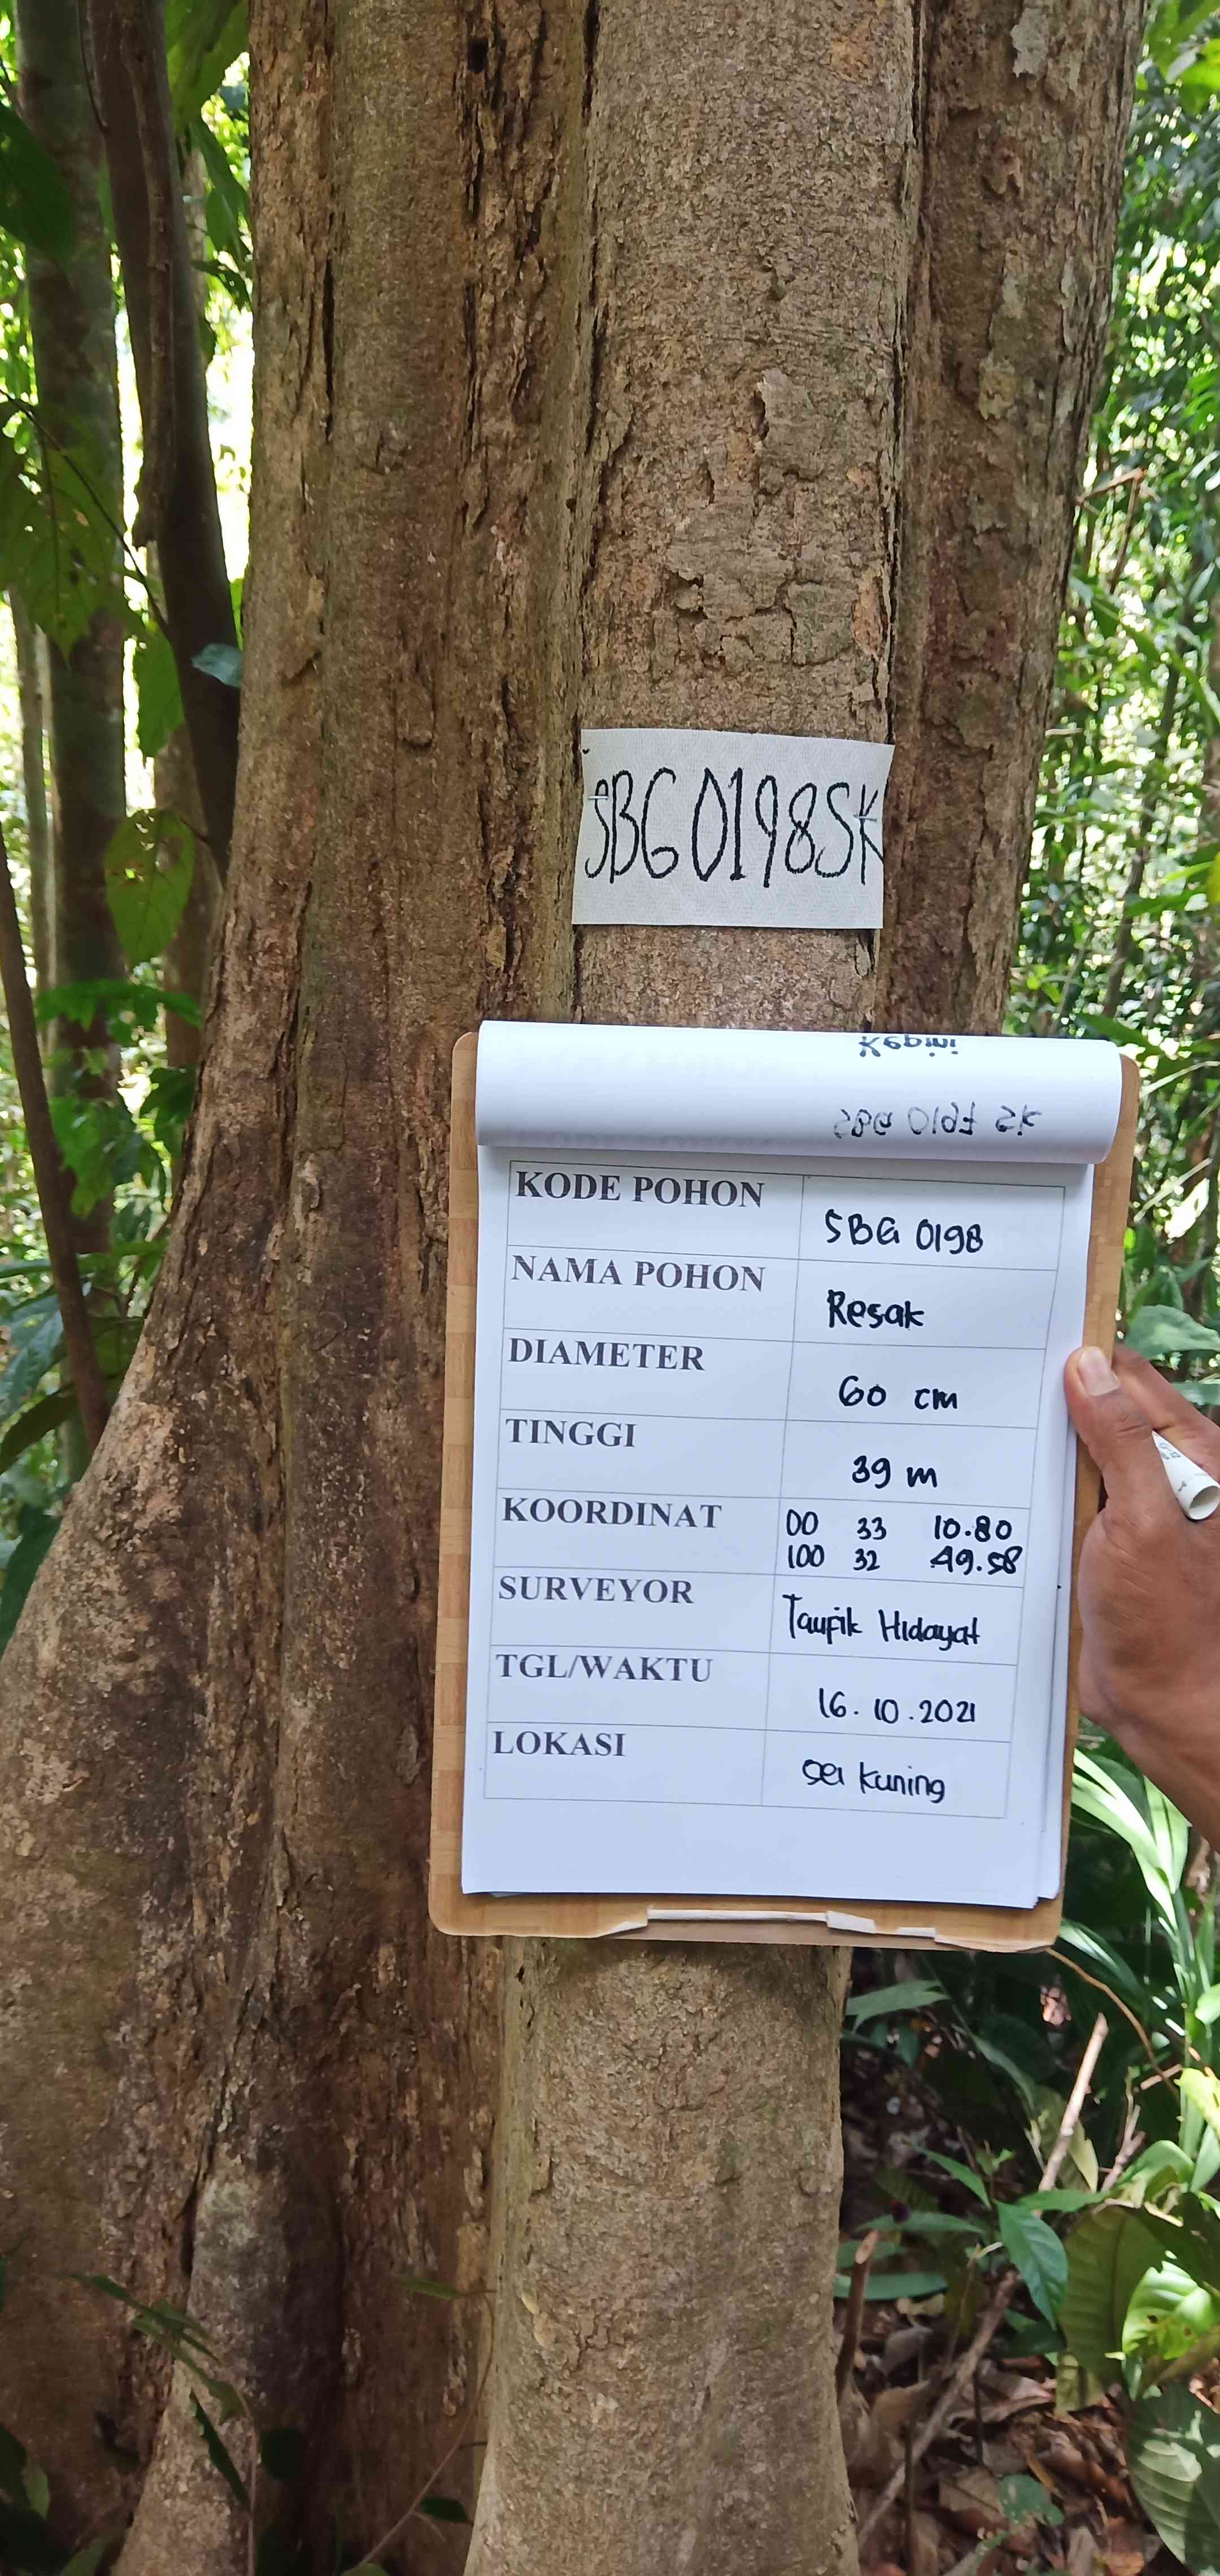 SBG0198SK
Kepini
SBG 0197 SK
KODE POHON SBG 0198
NAMA POHON Resak
DIAMETER 60 cm
TINGGI 39 m
KOORDINAT 00 33 10.80
100 32 49.58
SURVEYOR Taufik Hidayat
TGL/WAKTU 16.10.2021
LOKASI Sei Kuning